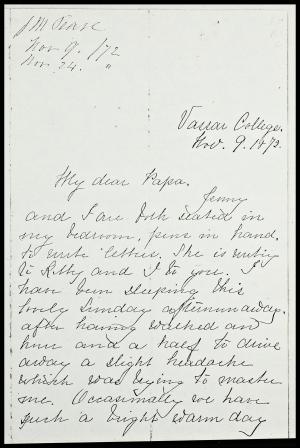 J M Pease
Nov 9. /72
Nov. 24. "
Vassar College.
Nov. 9. 1872.
My dear Papa.
Jenny
and I are both seated in
my bedroom, pens in hand,
to write letters. She is writing
to Kitty and I to you. I
have been sleeping this
lovely Sunday afternoon away.
after having walked an
hour and a half to drive
away a slight headache
which was trying to master
me. Occasionally we have
such a bright warm day